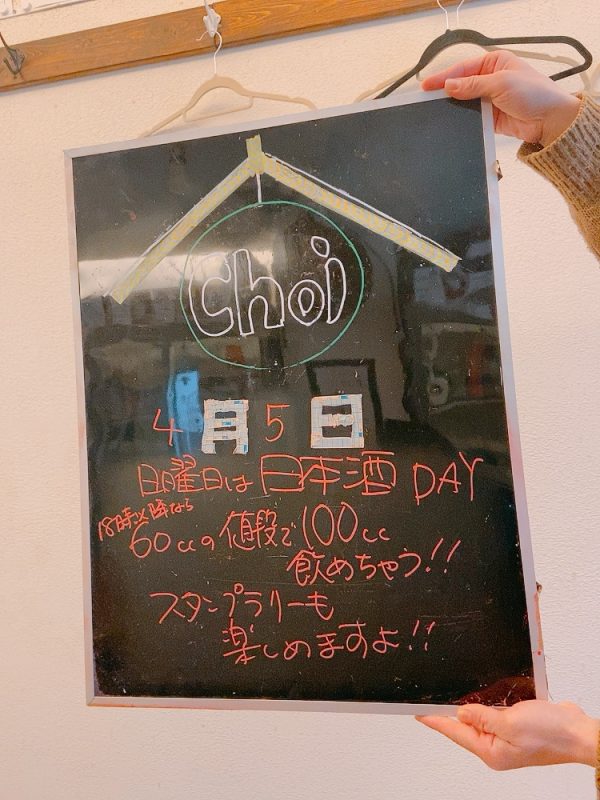 Choi
4月5日
日曜日は日本酒 DAY
18時以降なら
60ccの値段で100cc
飲めちゃう!!
スタンプラリーも
楽しめますよ!!